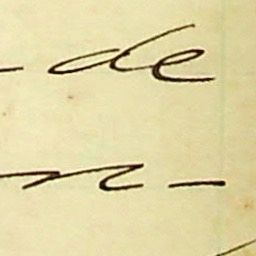 - de
n-